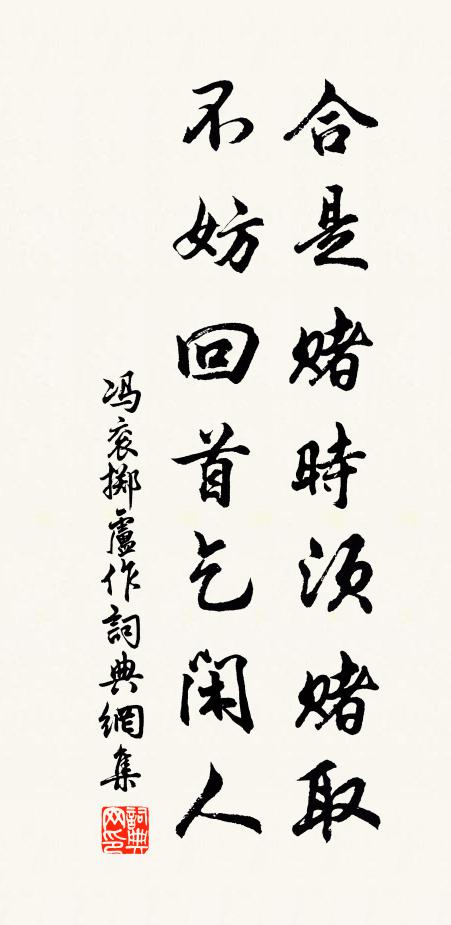 合是赌時须赌取
不妨回首乞闲人
冯衮掷盧作詞典網集
詞典网印